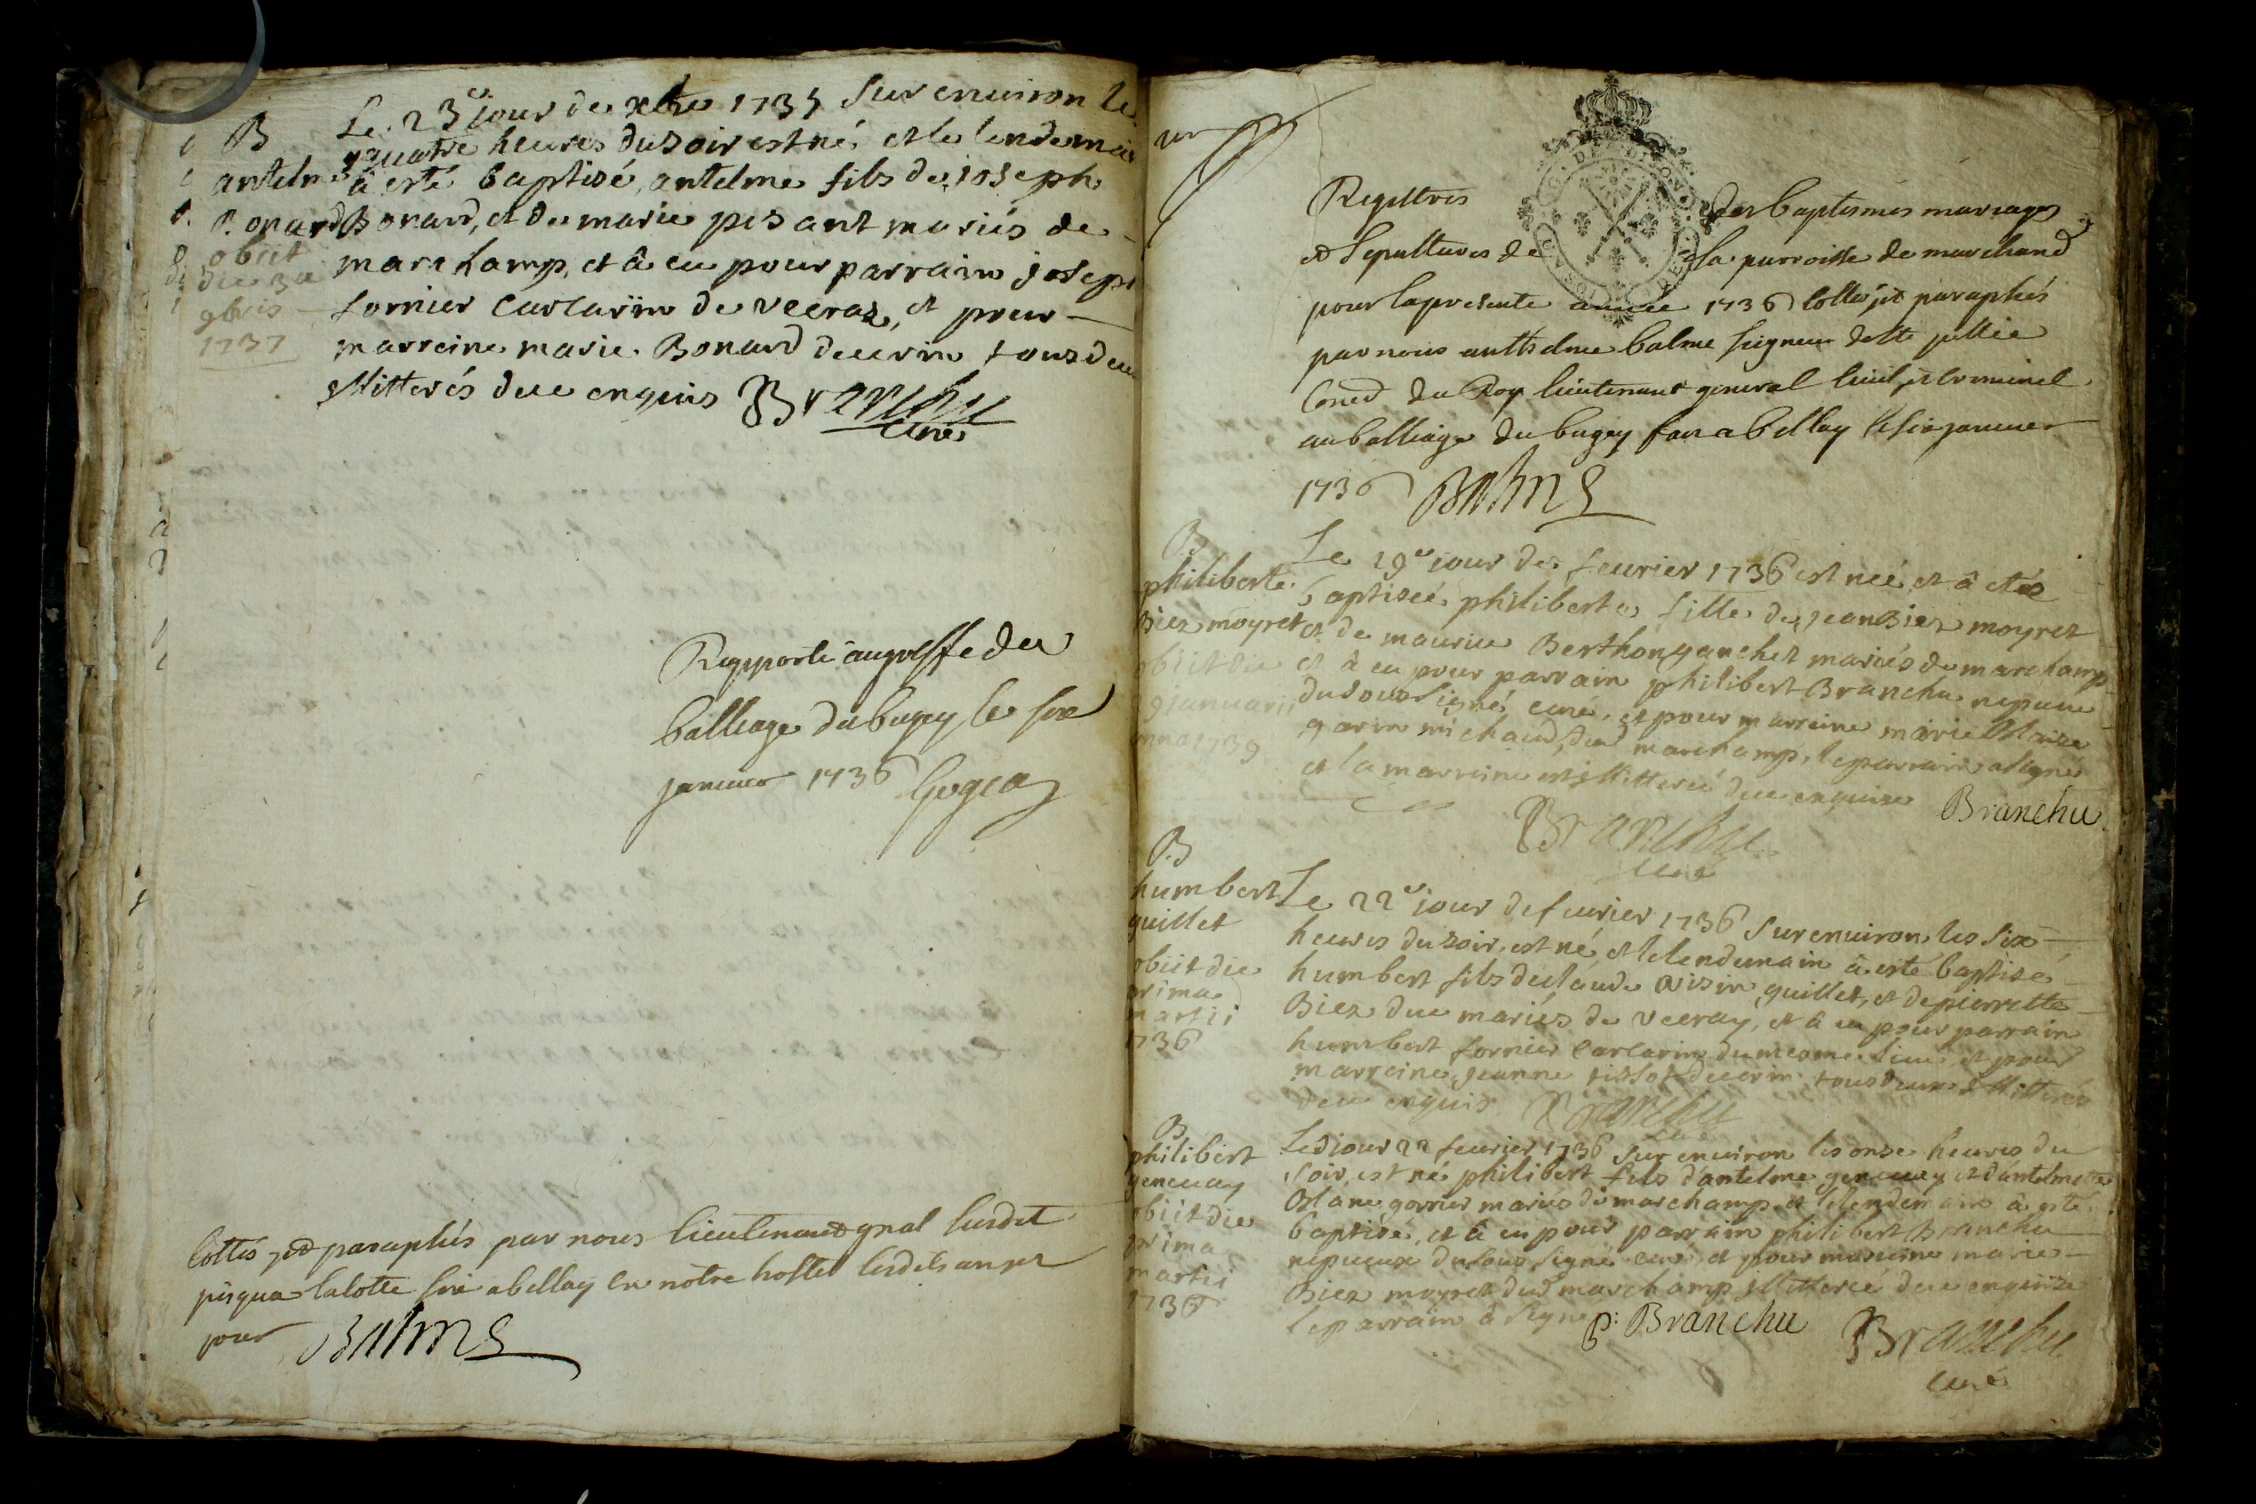 B
antelme
Bonard
obiit
die 3a
9bris
1737
Le 23e jour de xbre 1735 sur environ le
quatre heures du soir est né et le lendemain
â esté baptisé, antelme fils de joseph
Bonard, et de marie pisant mariés de
marchamp, et â eu pour parrain joseph
fornier carlarin de veeraz, et pour
marreine marie Bonard decrin tous deux
illitterés deue enquis Branchu
curé
Rapporté au greffe du
balliage du bugey le six
janvier 1736
Cottés et paraphés par nous lieutenant gnal susdit
jusqua lacotte six a bellay en nôtre hostel lesdits an et
jour Balme
un
Registres des baptismes mariages
et sepultures de la parroisse de marchand
pour la presente année 1736 Cottés et paraphés
par nous anthelme balme seigneur de Ste jullie
Conser du Roy lieutenant general civil et criminel
au balliage du bugey fait a bellay le six janvier
1736 Balme
B
philiberte
Biez moyret
obiit die
9 januarii
anno 1739
Le 19e jour de feurier 1736 est neé, et â etéz
baptisée philiberte, fille de jean Biez moyret
et de maurise Berthon ganchet mariés de marchamp
et â eu pour parrain philibert Branchu nepueu
du soussigné curé, et pour marreine marie Blaize
garin michaud, dud marchamp, le parrain a signé
et la marreine est illitterée deue enquize
Branchu
Branchu
curé
B
humbert
guillet
obiit die
prima
martii
1736
Le 22e jour de feurier 1736 sur environ les six
heures du soir, est né, et le lendemain â esté baptisé
humbert fils de claude voisin guillet, et de pierrette
Biez due mariés de veeray, et â eu pour parrain
humbert fornier carlarin du mesme lieu, et pour
marreine jeanne tissot decrin tous deux illitterés
deue enquis Branchu
curé
B
philibert
geneuay
obiit die
prima
martii
1736
Led jour 22 feurier 1736 sur environ les onze heures du
soir, est né philibert fils d'antelme geneuey et d'antelmette
Blanc gorrier mariés de marchamp et le lendemain â esté
baptisé, et â eu pour parrain philibert Branchu
nepueux du soussigné curé et pour marreine marie
Biez moyret dud marchamp illitterée deue enquize
le parrain â signé P: Branchu
Branchu
curé